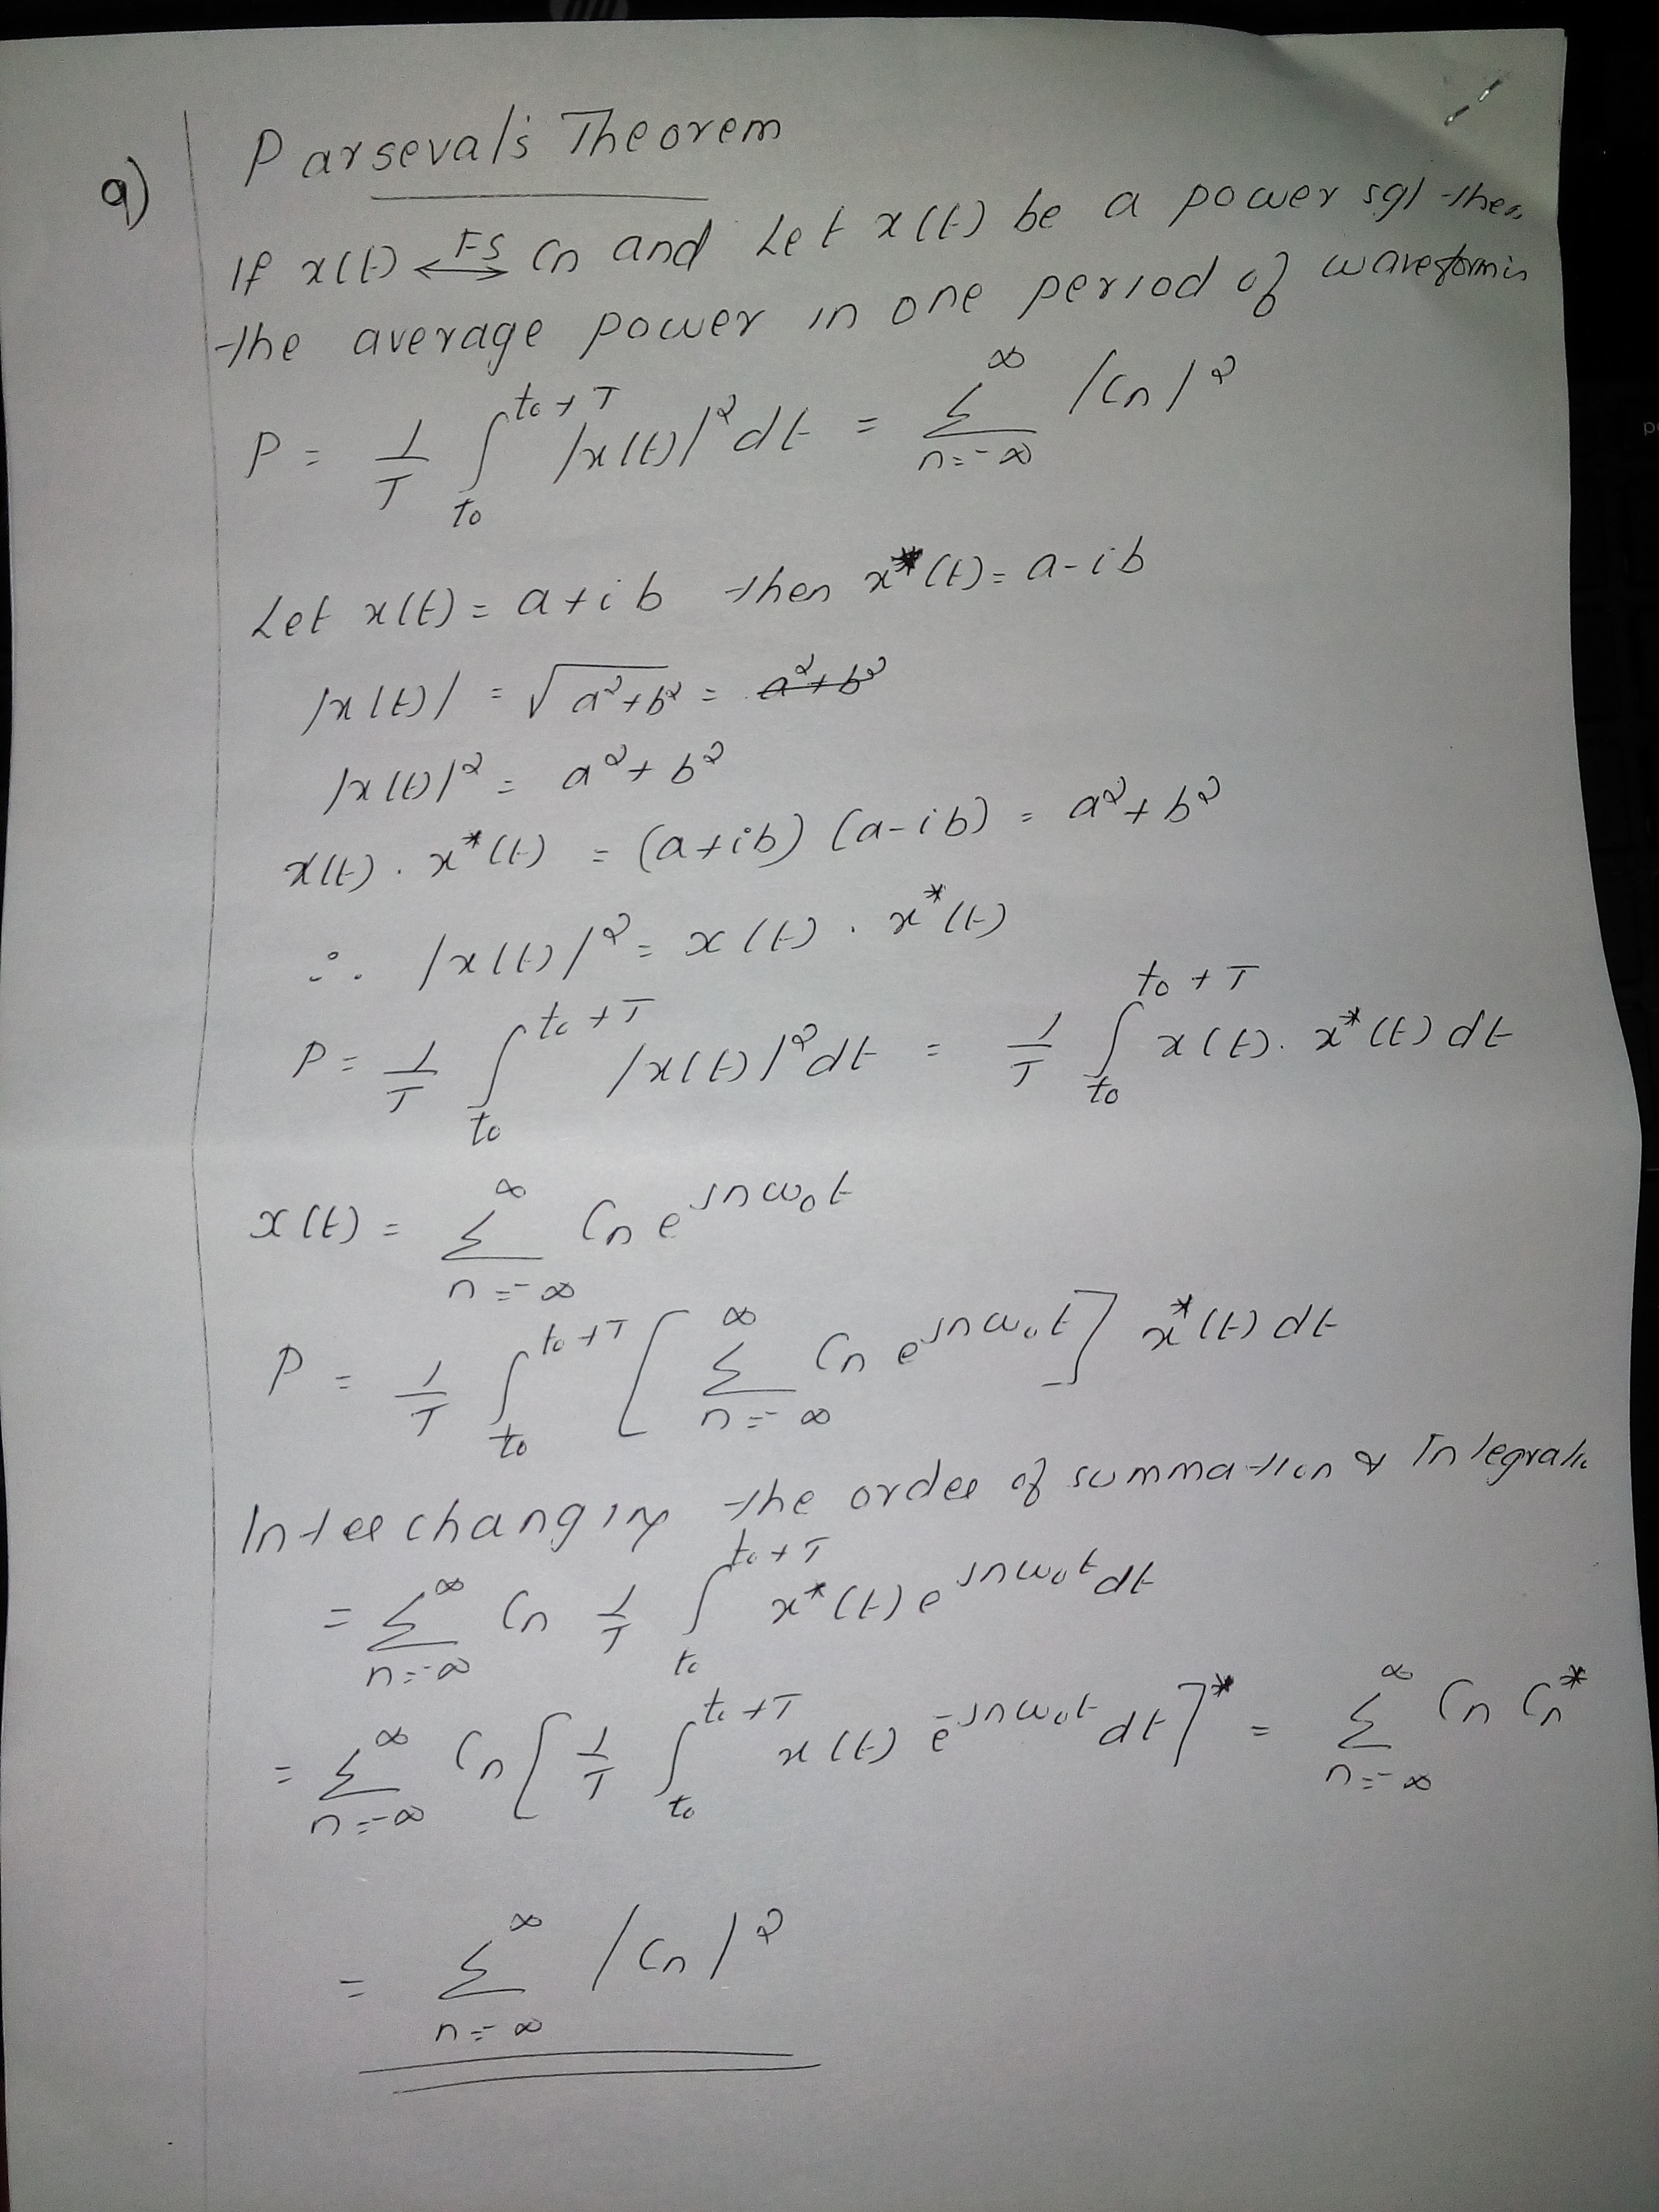 a)
Parseval's Theorem
If x(t) ←FS→ Cn and Let x(t) be a power sgl then
the average power in one period of waveform is
P = 1/T ∫_{t0}^{t0+T} |x(t)|² dt = Σ_{n=-∞}^{∞} |Cn|²
Let x(t) = a+ib then x*(t) = a-ib
|x(t)| = √a²+b² = a²+b²
|x(t)|² = a²+b²
x(t) . x*(t) = (a+ib) (a-ib) = a²+b²
∴ |x(t)|² = x(t) . x*(t)
P = 1/T ∫_{t0}^{t0+T} |x(t)|² dt = 1/T ∫_{t0}^{t0+T} x(t) . x*(t) dt
x(t) = Σ_{n=-∞}^{∞} Cn e^{jnω0t}
P = 1/T ∫_{t0}^{t0+T} [Σ_{n=-∞}^{∞} Cn e^{jnω0t}] x*(t) dt
Interchanging the order of summation &
= Σ_{n=-∞}^{∞} Cn 1/T ∫_{t0}^{t0+T} x*(t) e^{jnω0t} dt
= Σ_{n=-∞}^{∞} Cn [1/T ∫_{t0}^{t0+T} x(t) e^{-jnω0t} dt]* = Σ_{n=-∞}^{∞} Cn Cn*
= Σ_{n=-∞}^{∞} |Cn|²